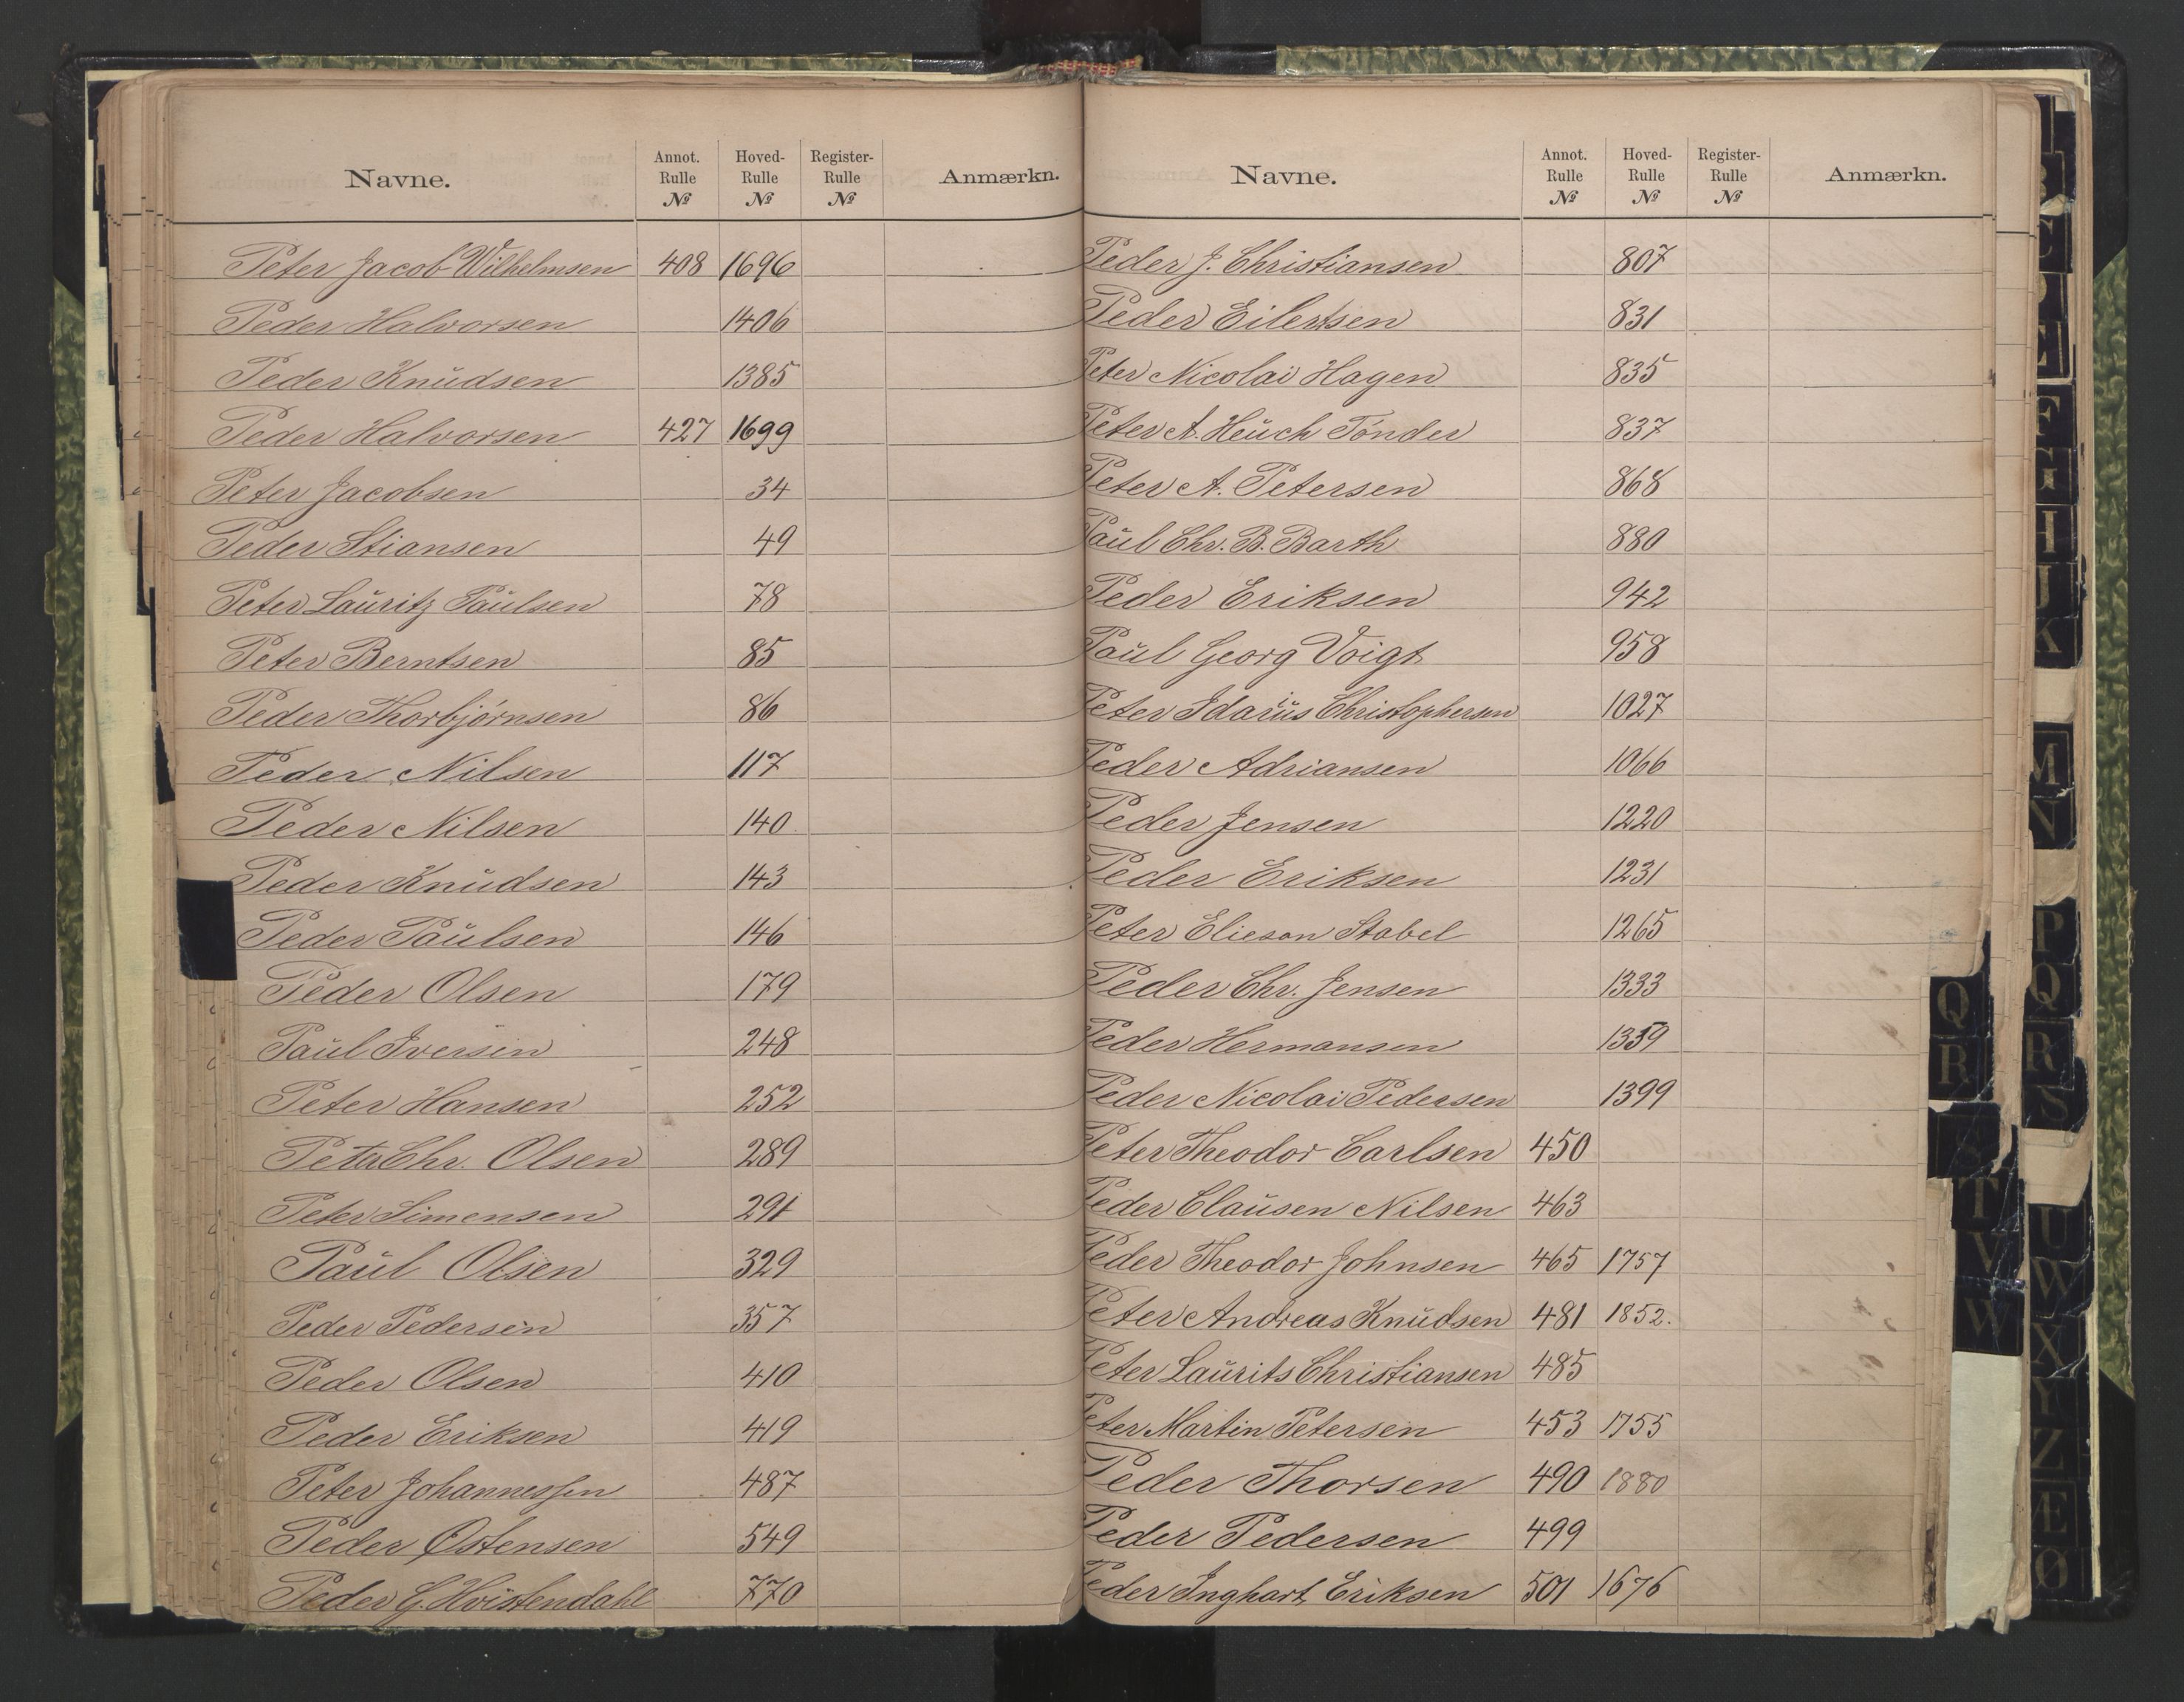 Navne. Annot. Rulle № Hoved-Rulle № Register-Rulle № Anmærkn.
Peter Jacob Wilhelmsen 408 1696
Peder Halvorsen 1406
Peder Knudsen 1385
Peder Halvorsen 427 1699
Peter Jacobsen 34
Peder Stiansen 49
Peter Lauritz Paulsen 78
Peter Berntsen 85
Peder Thorbjørnsen 86
Peder Nilsen 117
Peder Nilsen 140
Peder Knudsen 143
Peder Paulsen 146
Peder Olsen 179
Paul Iversen 248
Peter Hansen 252
Peter Chr. Olsen 289
Peter Simensen 291
Paul Olsen 329
Peder Pedersen 357
Peder Olsen 410
Peder Eriksen 419
Peter Johannessen 487
Peder Østensen 549
Peder G. Hvistendahl 770
Navne. Annot. Rulle № Hoved-Rulle № Register-Rulle № Anmærkn.
Peder J. Christiansen 807
Peder Eilertsen 831
Peter Nicolai Hagen 835
Peter A. Heuch Tønder 837
Peter A. Petersen 868
Paul Chr. B. Barth 880
Peder Eriksen 942
Paul Georg Voigt 958
Peter Idarius Christophersen 1027
Peder Adriansen 1066
Peder Jensen 1220
Peder Eriksen 1231
Peter Elieson Stabel 1265
Peder Chr. Jensen 1333
Peder Hermansen 1359
Peder Nicolai Pedersen 1399
Peter Theodor Carlsen 450
Peder Clausen Nilsen 463
Peder Theodor Johnsen 465 1757
Peter Andreas Knudsen 481 1852.
Peter Laurits Christiansen 485
Peter Martin Petersen 453 1755
Peder Thorsen 490 1880
Peder Pedersen 499
Peder Inghart Eriksen 501 1676
Q
R
S
T
V
W
C
E
F
G
H
J
K
M
N
P
Q
R
S
U
W
X
Y
Z
Æ
Ø